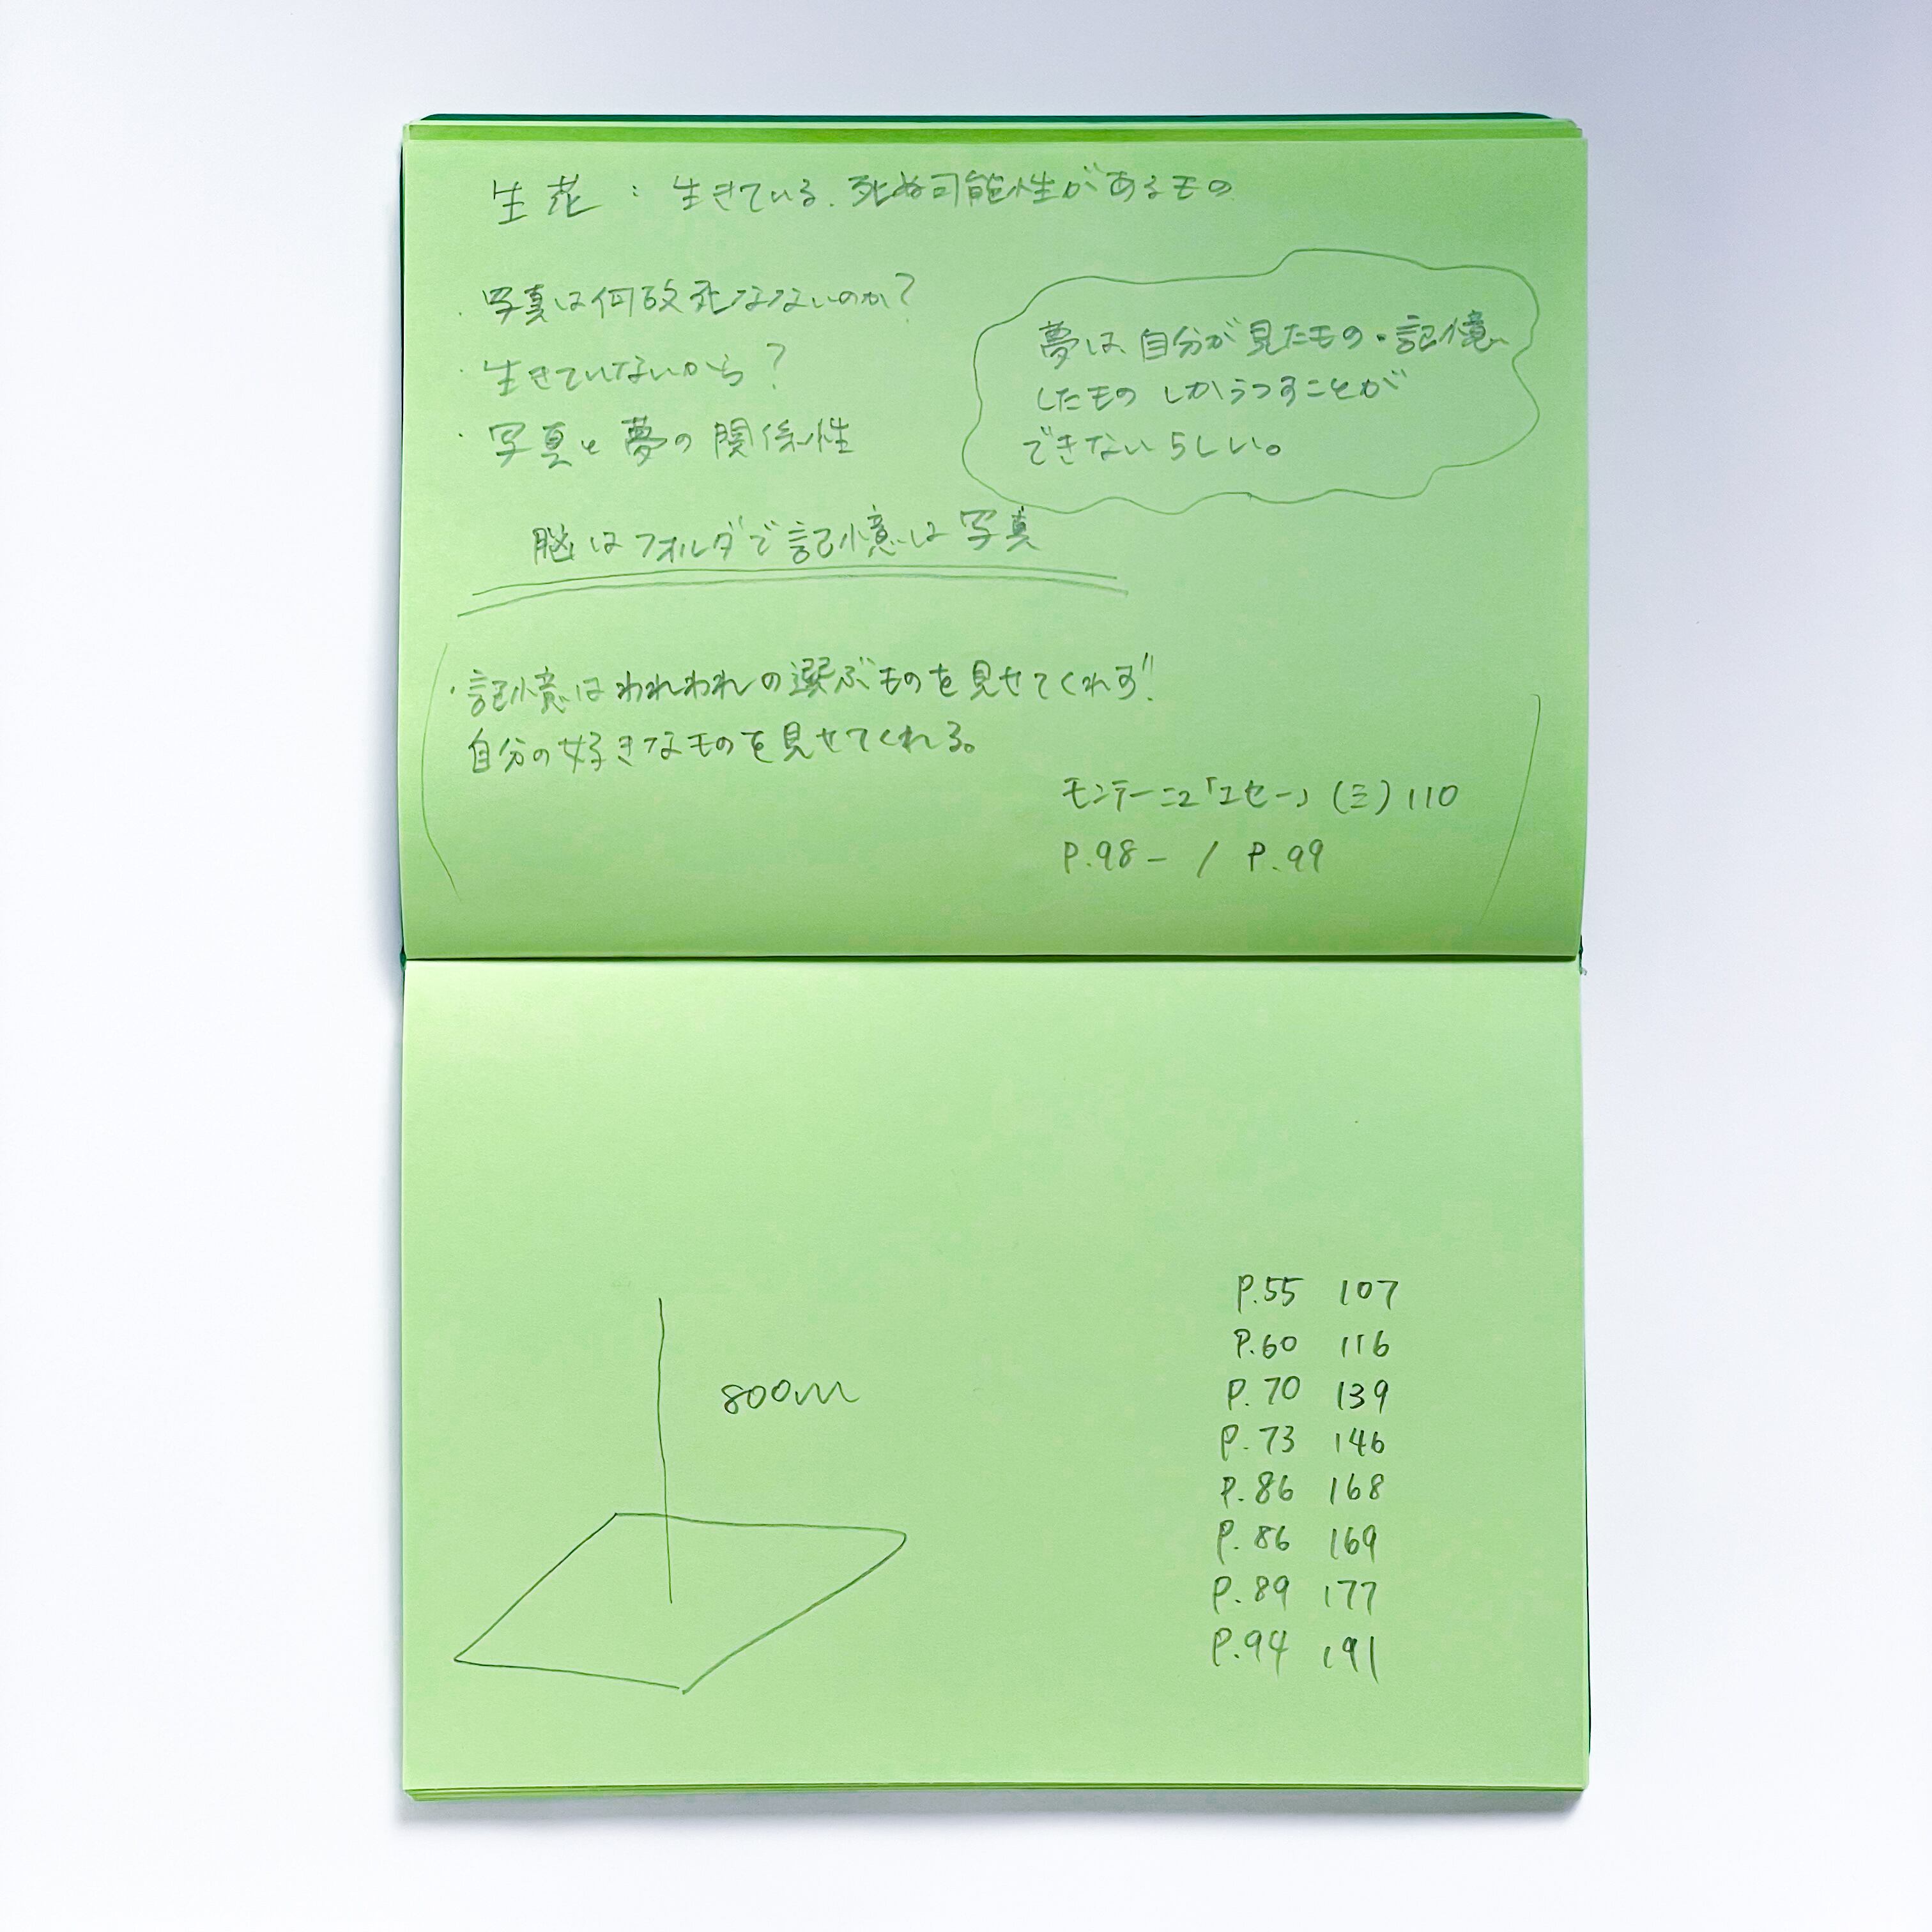 生花：生きている.死ぬ可能性があるもの
・写真は何故死なないのか？
・生きていないから？
・写真と夢の関係性
夢は自分が見たもの・記憶
したものしかうつすことが
できないらしい。
脳はフォルダで記憶は写真
・記憶はわれわれの選ぶものを見せてくれず!!
自分の好きなものを見せてくれる。
モンテーニュ「エセー」(三) 110
P.98 - / P.99
800m
P.55 107
P.60 116
P.70 139
P.73 146
P.86 168
P.86 169
P.89 177
P.94 191